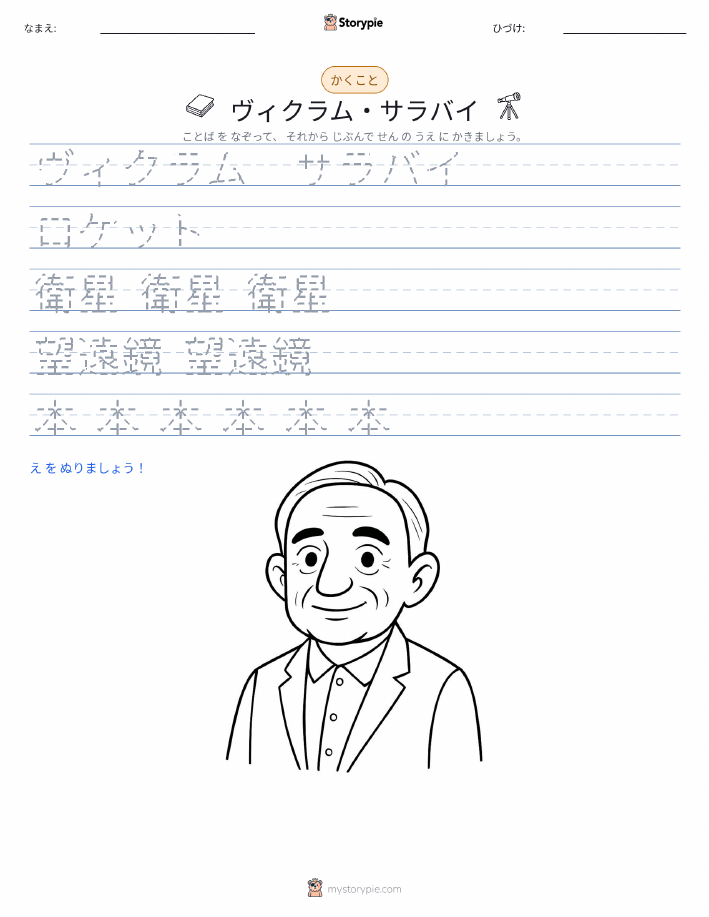 なまえ:
Storypie
ひづけ:
かくこと
ヴィクラム・サラバイ
ことば を なぞって、 それから じぶんで せん の うえ に かきましょう。
ヴィクラム サラバイ
ロケット
衛星 衛星 衛星
望遠鏡 望遠鏡
本 本 本 本 本 本
え を ぬりましょう！
mystorypie.com